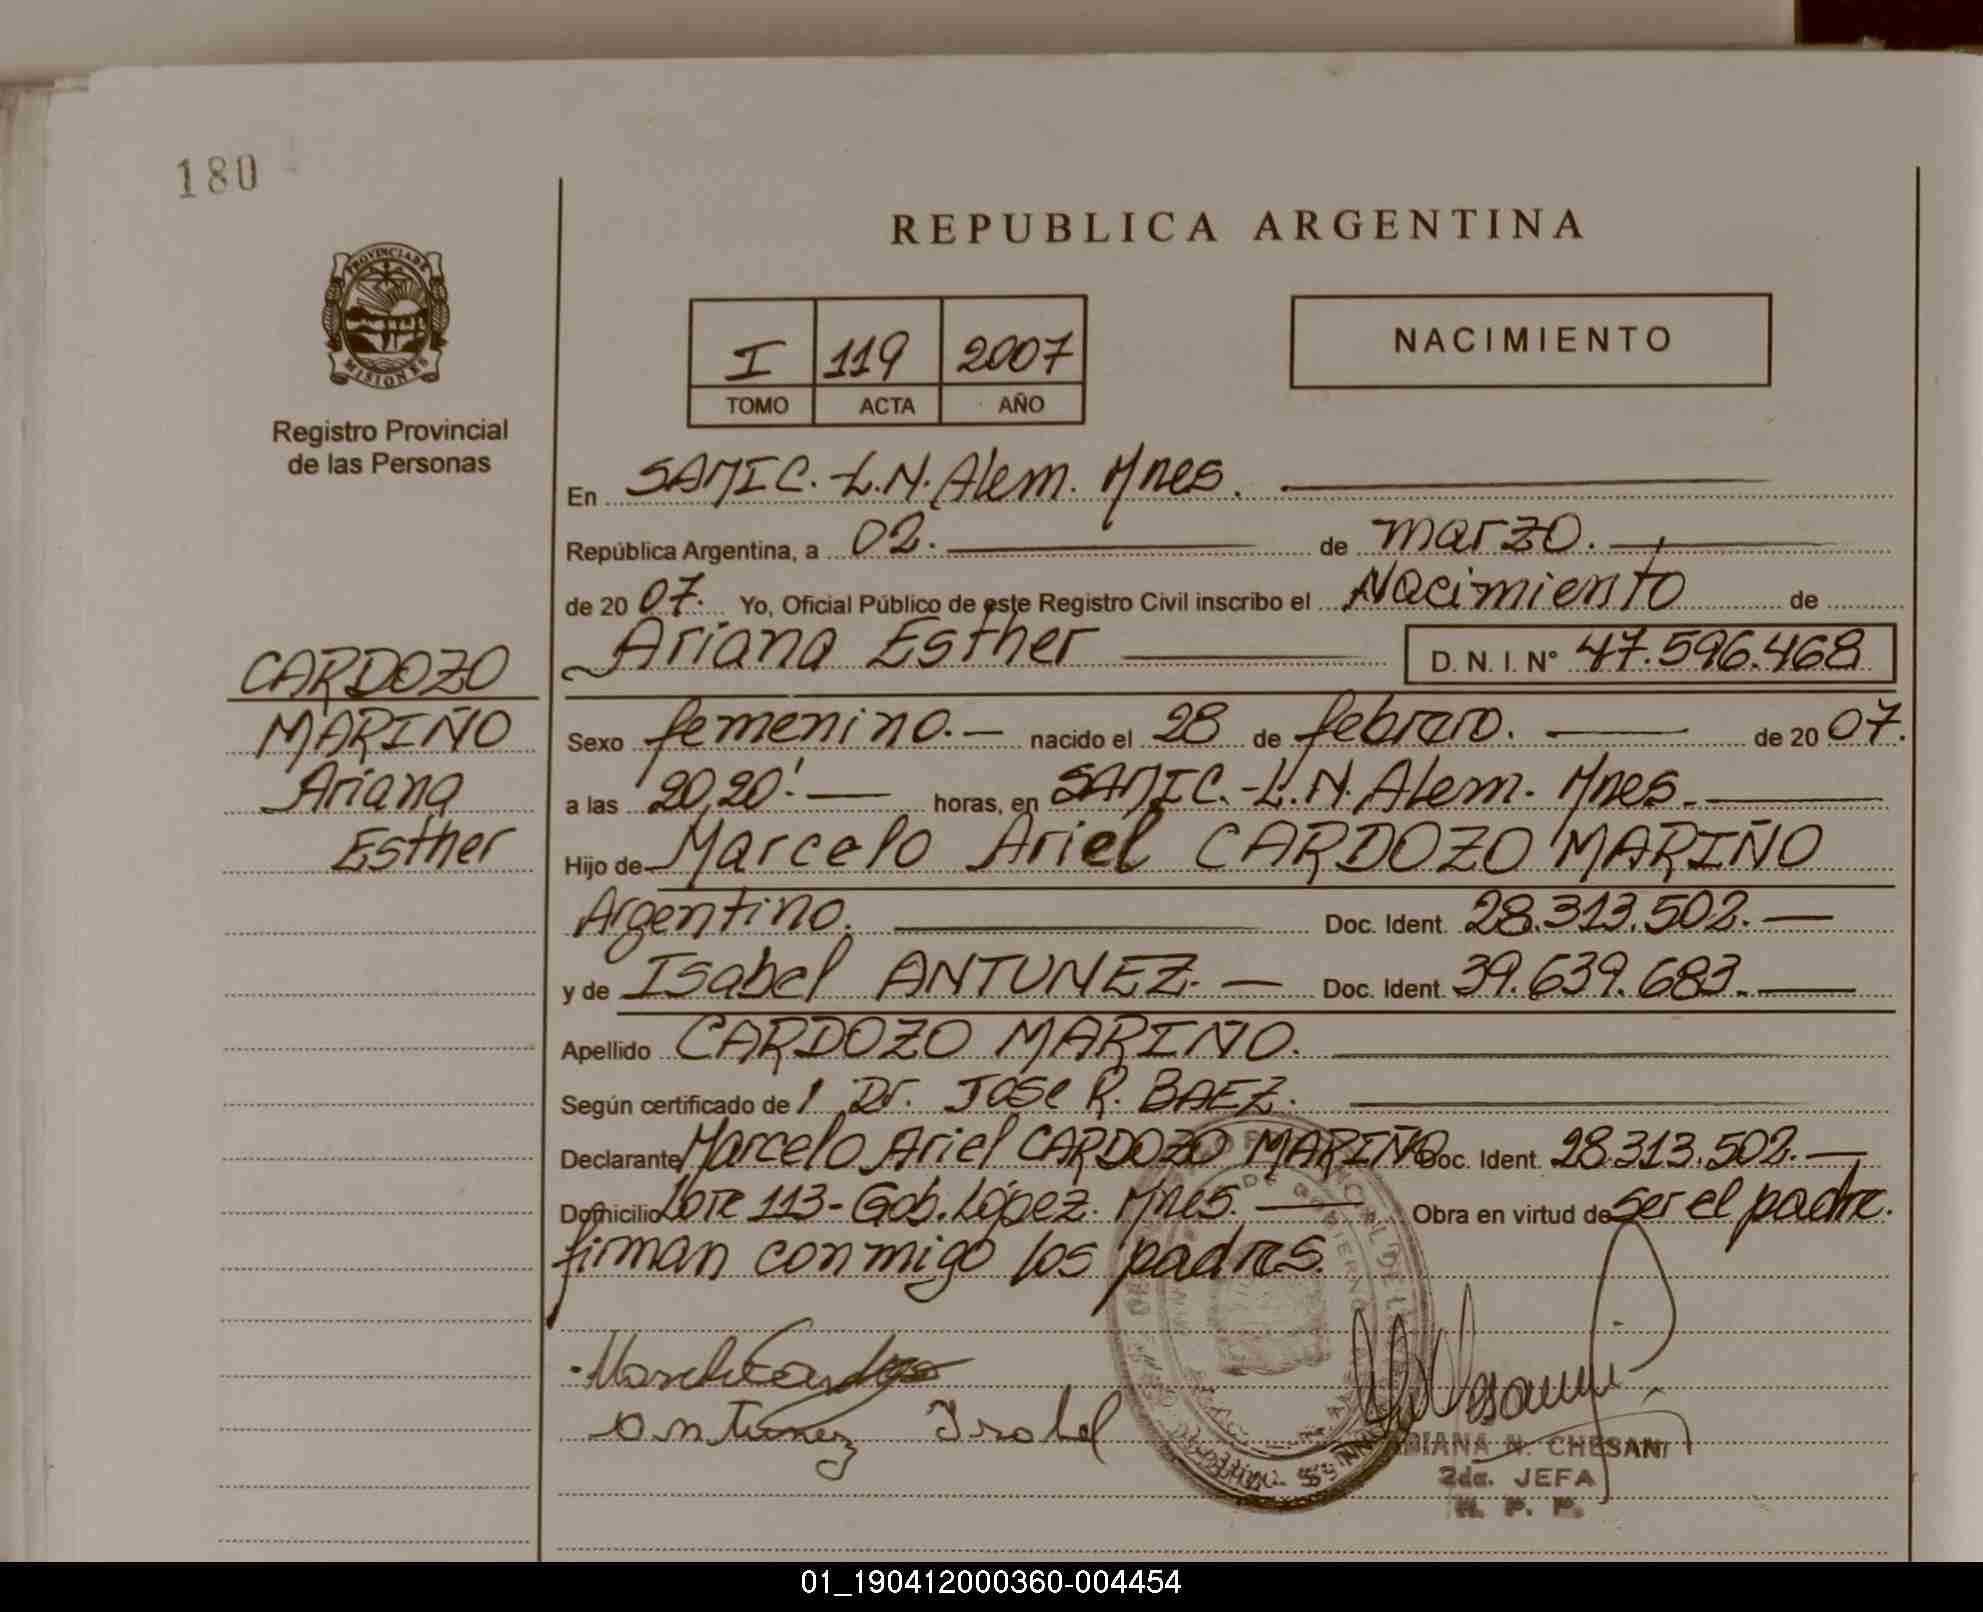 180
REPUBLICA ARGENTINA
PROVINCIA DE
MISIONES
Registro Provincial
de las Personas
I 119 2007
TOMO ACTA AÑO
NACIMIENTO
En SAMIC.-L.N.Alem. Mnes.
República Argentina, a 02. de marzo.
de 20 07. Yo, Oficial Público de este Registro Civil inscribo el Nacimiento de
Ariana Esther D. N. I. N° 47.596.468
CARDOZO
MARIÑO
Ariana
Esther
Sexo femenino.- nacido el 28 de febrero. de 20 07.
a las 20,20'. horas, en SAMIC.-L.N.Alem. Mnes.
Hijo de Marcelo Ariel CARDOZO MARIÑO
Argentino. Doc. Ident. 28.313.502.
y de Isabel ANTUNEZ. Doc. Ident. 39.639.683.
Apellido CARDOZO MARIÑO.
Según certificado de 1 Dr. Jose R. BAEZ.
Declarante Marcelo Ariel CARDOZO MARIÑO Doc. Ident. 28.313.502.
Domicilio Lote 113-Gob.López. Mnes. Obra en virtud de ser el padre.
firman conmigo los padres.
Antunez Isabel
N. CHESANI
2da. JEFA
R. P. P.
01_190412000360-004454